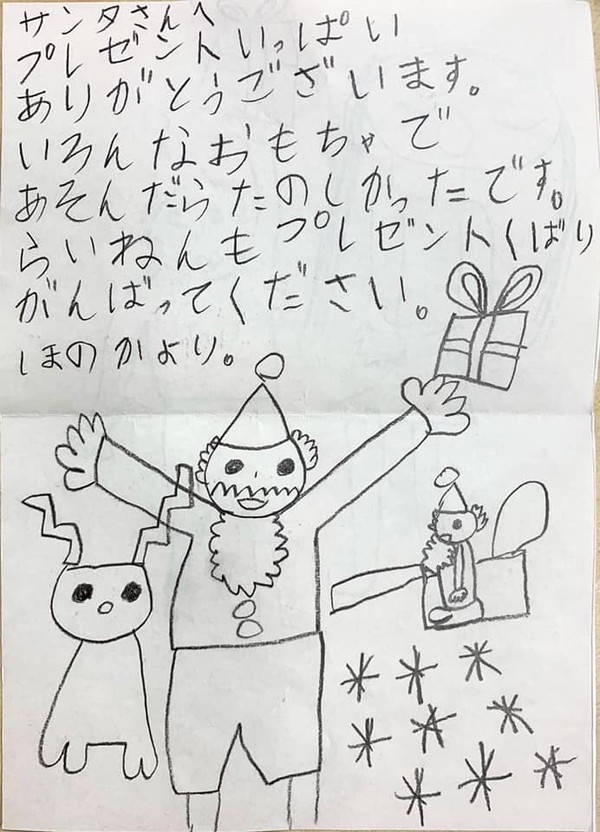 サンタさんへ
プレゼントいっぱい
ありがとうございます。
いろんなおもちゃで
あそんだらたのしかったです。
らいねんもプレゼントくばり
がんばってください。
ほのかより。